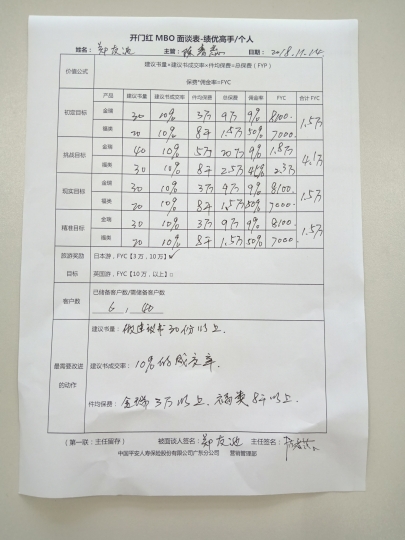 开门红 MBO 面谈表-绩优高手/个人
姓名： 主管： 日期：2018.11.14
价值公式 建议书量*建议书成交率*件均保费=总保费（FYP）
保费*佣金率=FYC
产品 建议书量 建议书成交率 件均保费 总保费 佣金率 FYC 合计 FYC
初定目标 金瑞 30 10% 3万 9万 9% 8100 1.5万
福类 20 10% 8千 1.5万 50% 7000
挑战目标 金瑞 40 10% 5万 20万 9% 1.8万 4.1万
福类 30 10% 8千 2.5万 2.3万
现实目标 金瑞 30 10% 3万 9% 8100 1.5万
福类 20 10% 8千 1.5万 50% 7000
精准目标 金瑞 30 10% 3万 9万 9% 8100 1.5万
福类 20 10% 8千 1.5万 50% 7000
旅游奖励目标 日本游，FYC【3万，10万】✓
英国游，FYC【10万，以上】□
客户数 已储备客户数/需储备客户数
6，40
最需要改进的动作
建议书量：做建议书30份以上.
建议书成交率：10%的成交率.
件均保费：金瑞3万以上，福类8千以上.
（第一联：主任留存） 被面谈人签名： 主任签名：
中国平安人寿保险股份有限公司广东分公司 营销管理部